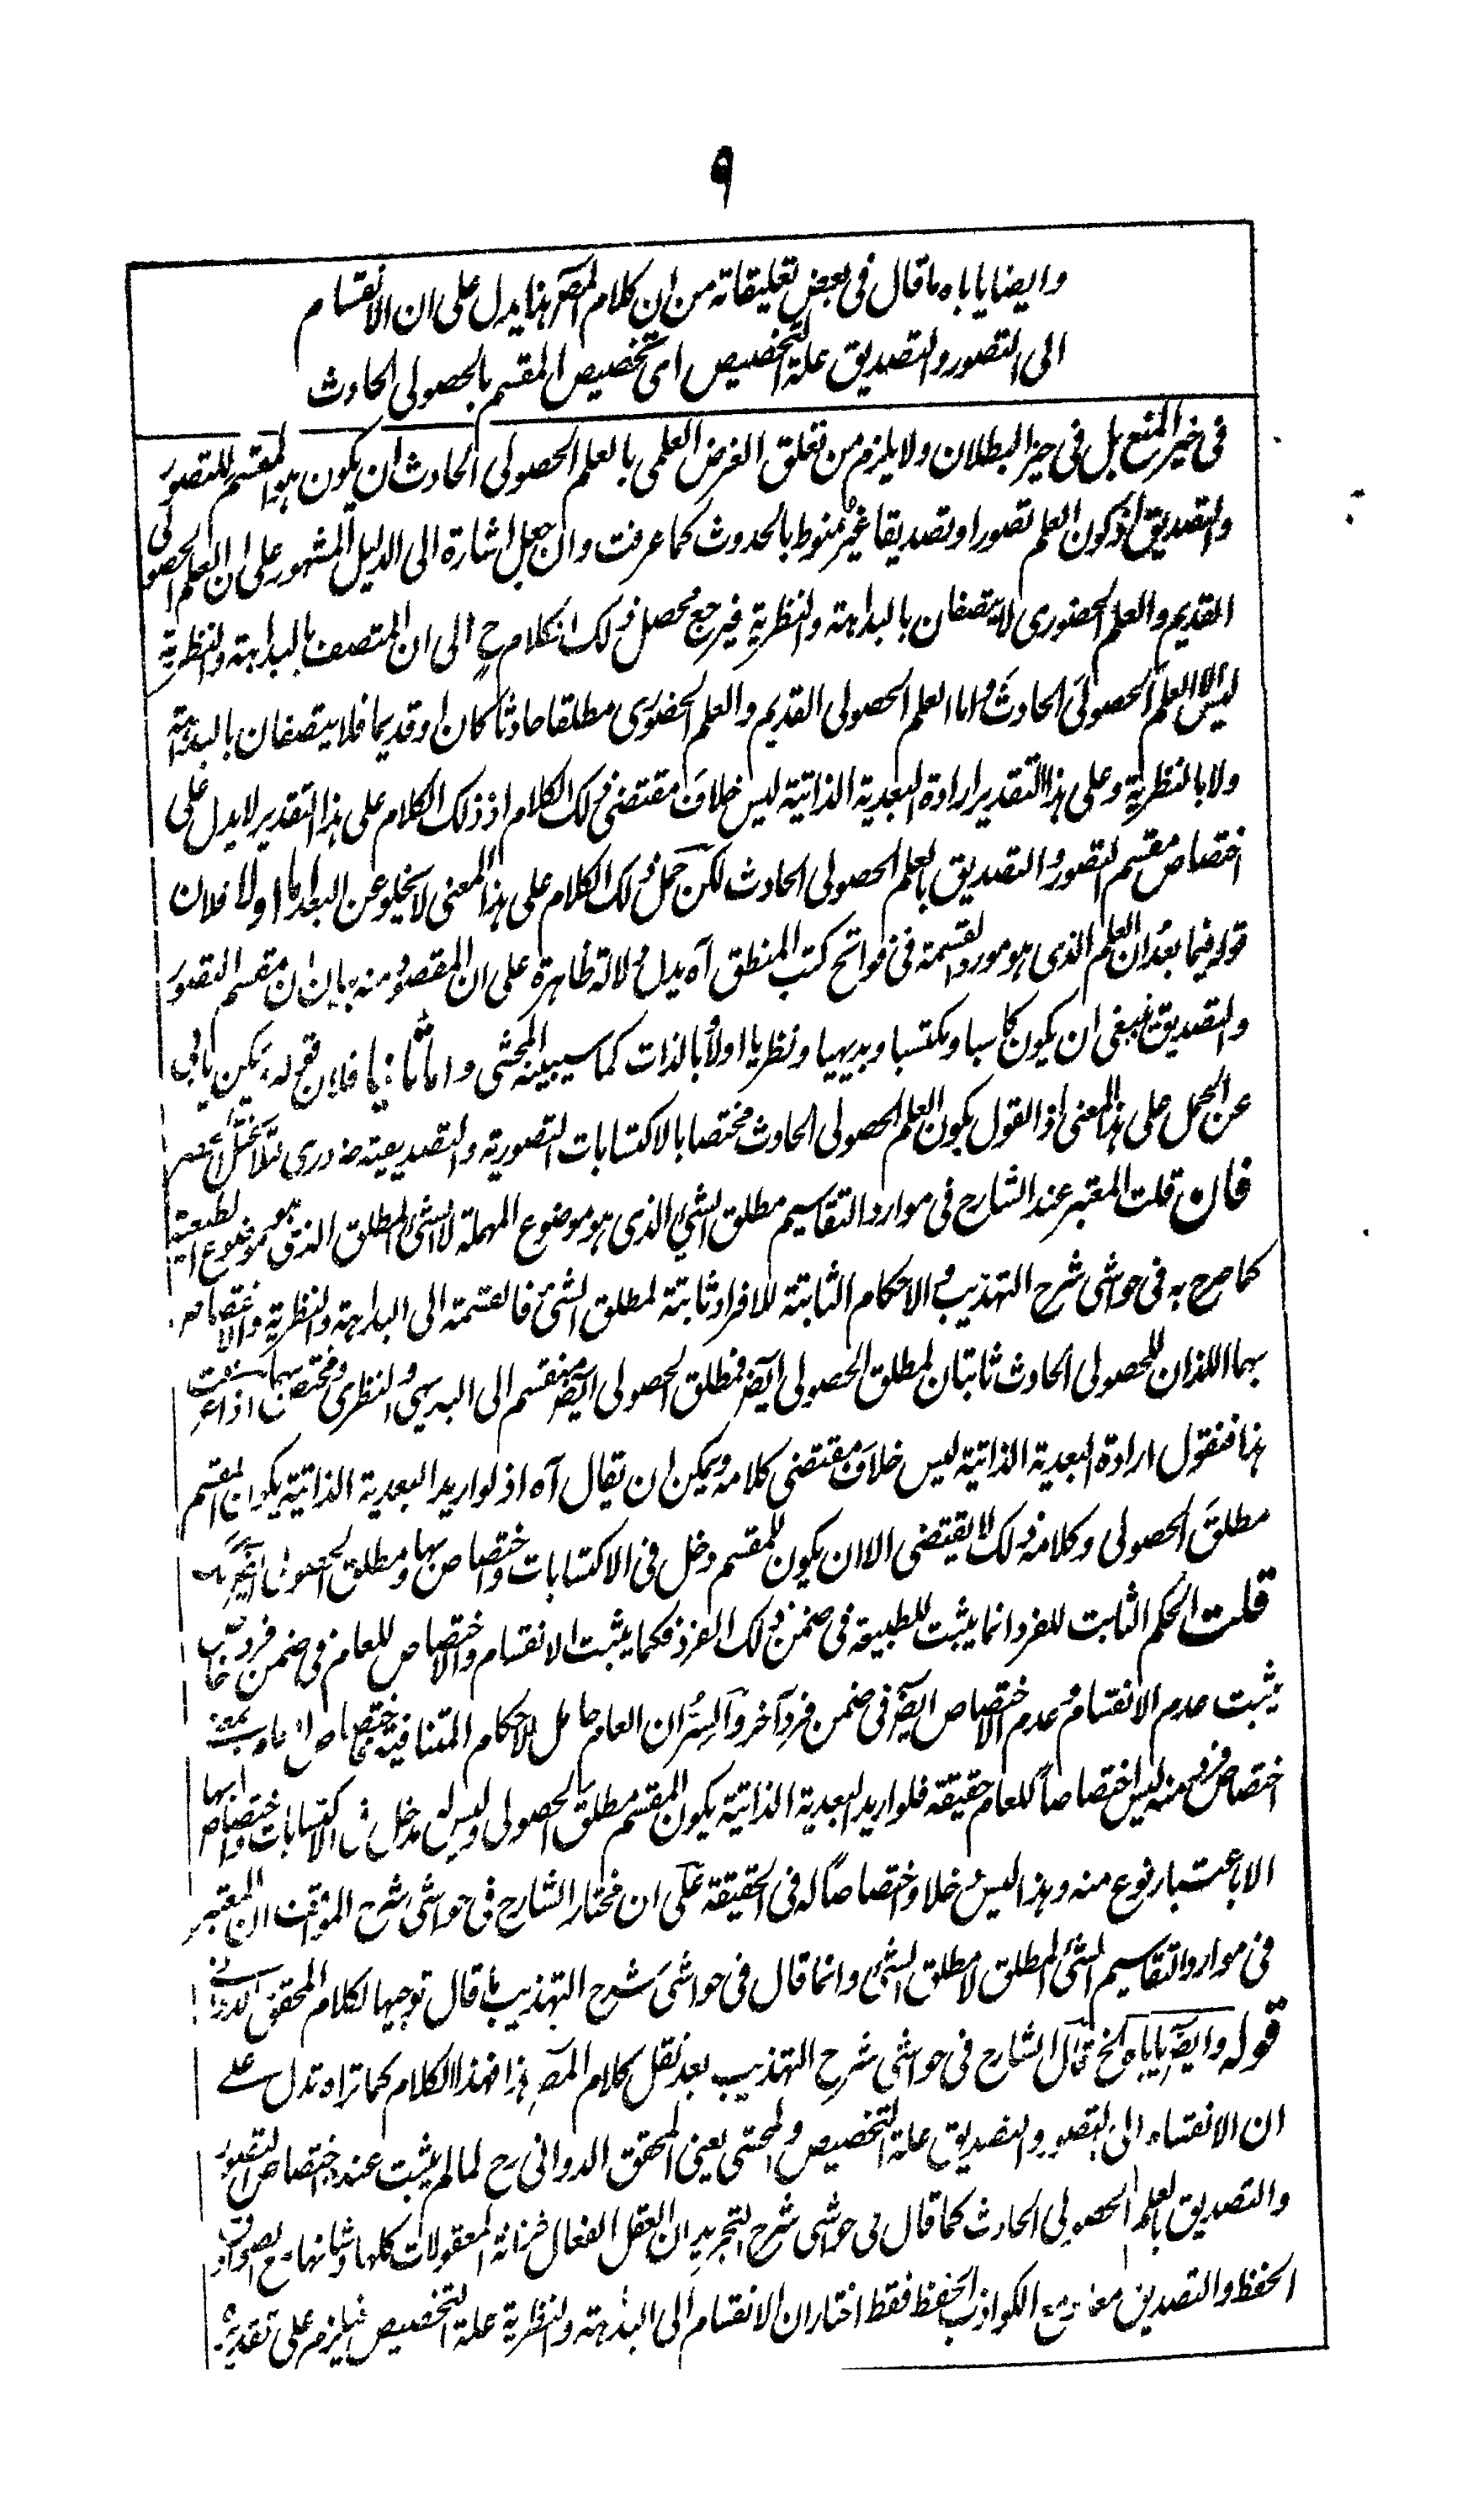 ٩
وايضا ياباه ما قال فى بعض تعليقاته من ان كلام المصَ هذا يدل على ان الانقسام
الى التصور والتصديق علة التخصيص اى تخصيص المقسم بالحصولى الحادث
فى خير المنع بل فى حيز البطلان ولا يلزم من تعلق الغرض العلمى بالعلم الحصولى الحادث ان يكون هو المقسم للتصور
والتصديق اذ كون العلم تصورا وتصديقا غير منوط بالحدوث كما عرفت وان جعل اشارة الى الدليل المشهور على ان العلم الحصولى
القديم والعلم الحضورى لا يتصفان بالبداهة والنظرية فيرجع محصل ذلك الكلام ح الى ان المتصف بالبداهة والنظرية
ليس الا العلم الحصولى الحادث واما العلم الحصولى القديم والعلم الحضورى مطلقا حادثا كان او قديما فلا يتصفان بالبداهة
ولا بالنظرية وعلى هذا التقدير ارادة البعدية الذاتية ليس خلاف مقتضى ذلك الكلام اذ ذلك الكلام على هذا التقدير لا يدل على
اختصاص مقسم التصور والتصديق بالعلم الحصولى الحادث لكن حمل ذلك الكلام على هذا المعنى لا يخلو عن البعد اما اولا فلان
قوله فيما بعد ان العلم الذى هو مورد القسمة فى فواتح كتب المنطق آه يدل دلالة ظاهرة على ان المقصود منه بيان ان مقسم التصور
والتصديق ينبغى ان يكون كاسبا ومكتسبا وبديهيا ونظريا اولا وبالذات كما سيبينه المحشى واما ثانيا فلان قوله يمكن يابى
عن الحمل على هذا المعنى اذ القول بكون العلم الحصولى الحادث مختصا بالاكتسابات التصورية والتصديقية ضرورى لئلا يختل الحصر
فان قلت المعتبر عند الشارح فى موارد التقاسيم مطلق الشئ الذى هو موضوع المهملة لا الشئ المطلق الذى هو موضوع الطبعية
كما صرح به فى حواشى شرح التهذيب والاحكام الثابتة للافراد ثابتة لمطلق الشئ فالقسمة الى البداهة والنظرية والاختصاص
بهما اللذان للحصولى الحادث ثابتان لمطلق الحصولى ايضَ فمطلق الحصولى ايضَ منقسم الى البديهى والنظرى ومختص بهما اذا عرفت
هذا فنقول ارادة البعدية الذاتية ليس خلاف مقتضى كلامه ويمكن ان يقال آه اذ لو اريد البعدية الذاتية يكون المقسم
مطلق الحصولى وكلامه ذلك لا يقتضى الا ان يكون للمقسم دخل فى الاكتسابات واختصاص بها ومطلق الحصولى ايضَ كذلك
قلت الحكم الثابت للفرد انما يثبت للطبيعة فى ضمن ذلك الفرد فكما يثبت الانقسام والاختصاص للعام فى ضمن فرد خاص
يثبت عدم الانقسام وعدم الاختصاص ايضَ فى ضمن فرد آخر والسر ان العام حامل للاحكام المتنافية فاختصاص العام بمعنى
اختصاص فرد منه ليس اختصاصاً للعام حقيقة فلو اريد البعدية الذاتية يكون المقسم مطلق الحصولى وليس له مدخل فى الاكتسابات واختصاص بها
الا باعتبار نوع منه وهذا ليس دخلا واختصاصاً له فى الحقيقة على ان مختار الشارح فى حواشى شرح المواقف ان المعتبر
فى موارد التقاسيم الشئ المطلق لا مطلق الشئ وانما قال فى حواشى شرح التهذيب ما قال توجيها لكلام المحقق الدوانى
قوله وايضَ ياباه الخ قال الشارح فى حواشى شرح التهذيب بعد نقل كلام المصَ هذا فهذا الكلام كما تراه تدل على
ان الانقسام الى التصور والتصديق علة التخصيص والمحشى يعنى المحقق الدوانى رح لما لم يثبت عنده اختصاص التصور
والتصديق بالعلم الحصولى الحادث كما قال فى حواشى شرح التجريد ان العقل الفعال خزانة المعقولات كلها وشانها مع الصوادق
الحفظ والتصديق معا ومع الكواذب الحفظ فقط اختار ان الانقسام الى البداهة والنظرية علة التخصيص فيلزم على تقدير